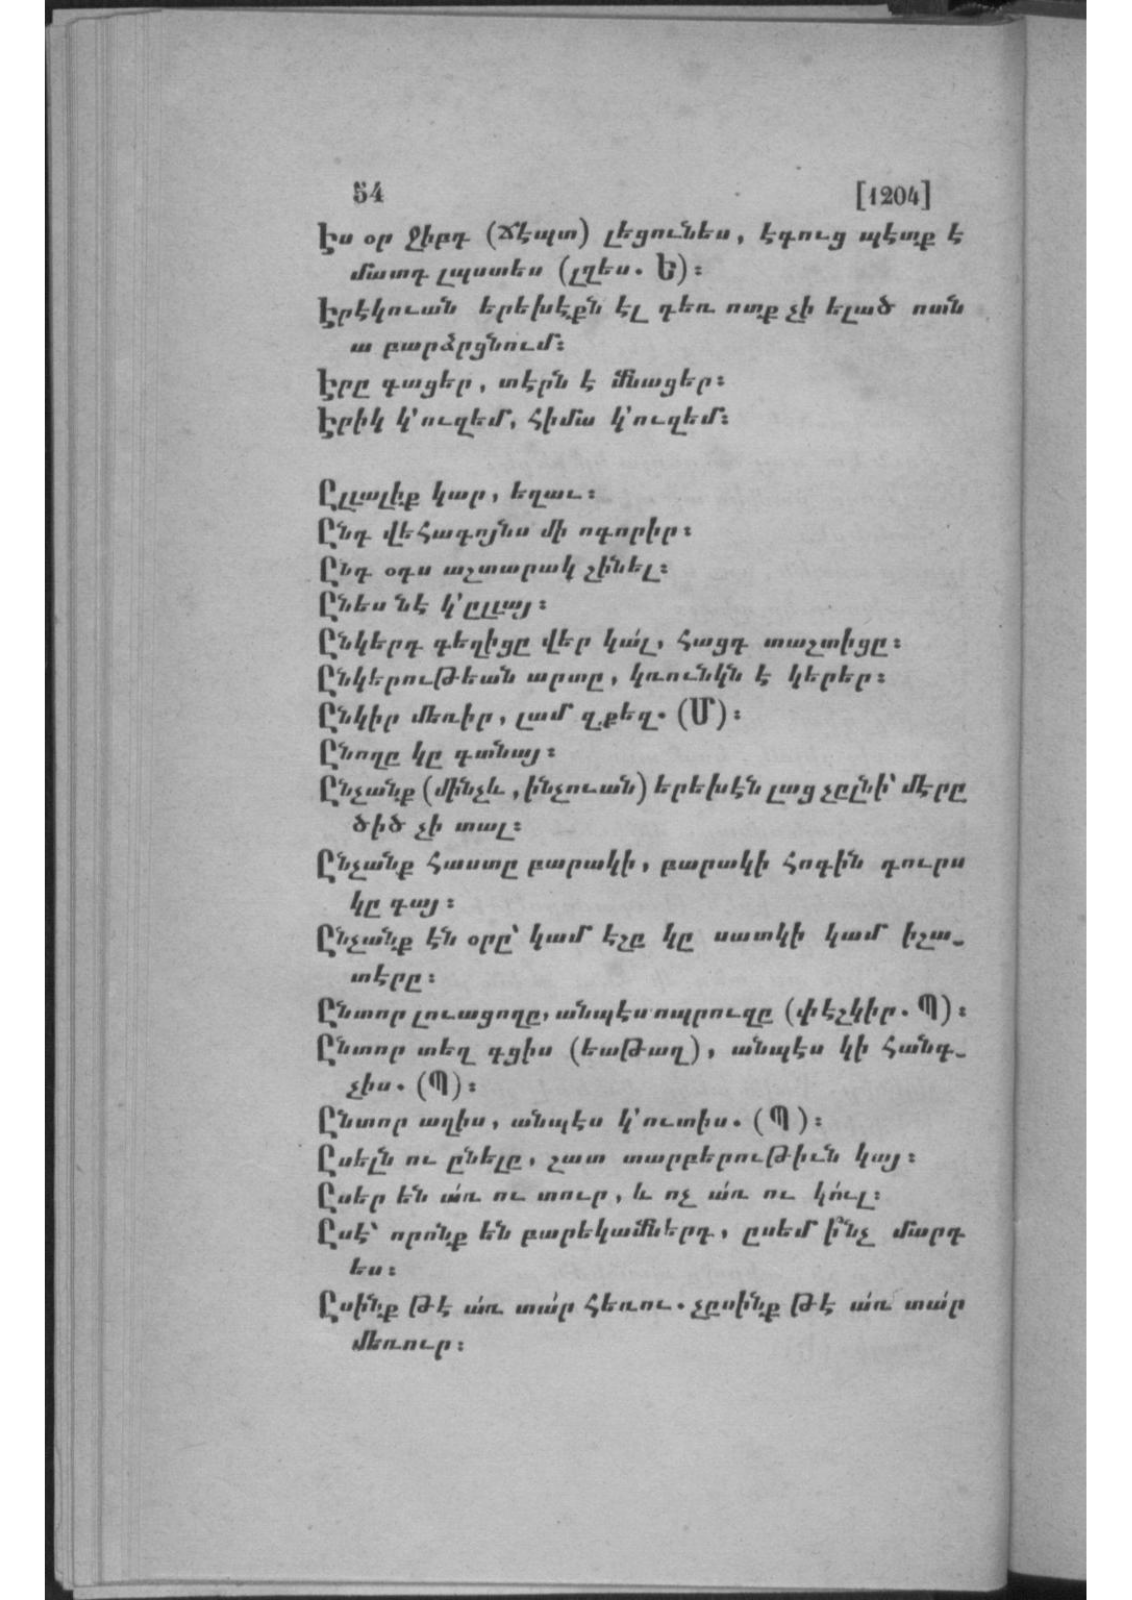 54 [1204]
Էս օր ջիբդ (ճէպտ) լեցունես, էգուց պէտք է
մատդ լպստես (լղես. Ե)։
Էրէկուան երեխէքն էլ դեռ ոտք չի ելած ոսն
ա բարձրցնում։
Էրը գացեր, տէրն է մնացեր։
Էրիկ կ՚ուզեմ, հիմա կ՚ուզեմ։
Ըլլալիք կար, եղաւ։
Ընդ վեհագոյնս մի ոգորիր։
Ընդ օդս աշտարակ շինել։
Ընես նէ կ՚ըլլայ։
Ընկերդ գեղիցը վեր կա՛լ, հացդ տաշտիցը։
Ընկերութեան արտը, կռունկն է կերեր։
Ընկիր մեռիր, լամ զքեզ. (Մ)։
Ընողը կը գտնայ։
Ընչանք (մինչև, ինչուան) երեխէն լաց չըլնի՝ մէրը
ծիծ չի տալ։
Ընչանք հաստը բարակի, բարակի հոգին դուրս
կը գայ։
Ընչանք էն օրը՝ կամ էշը կը սատկի կամ իշա֊
տէրը։
Ընտոր լուացողը, անպէս ոպրուզը (փէշկիր. Պ)։
Ընտոր տեղ գցիս (եաթաղ), անպէս կի հանգ֊
չիս. (Պ)։
Ընտոր աղիս, անպէս կ՚ուտիս. (Պ)։
Ըսելն ու ընելը, շատ տարբերութիւն կայ։
Ըսեր են ա՛ռ ու տուր, և ոչ ա՛ռ ու կո՛ւլ։
Ըսէ՝ որո՛նք են բարեկամներդ, ըսեմ ի՞նչ մարդ
ես։
Ըսինք թէ ա՛ռ տա՛ր հեռու. չըսինք թէ ա՛ռ տա՛ր
մեռուր։